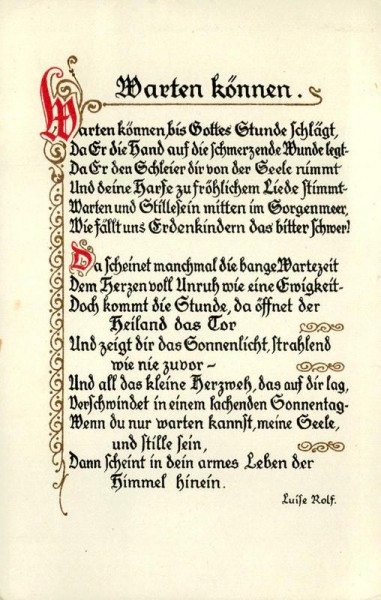 Warten können.
Warten können, bis Gottes Stunde schlägt,
Da Er die Hand auf die schmerzende Wunde legt-
Da Er den Schleier dir von der Seele nimmt
Und deine Harfe zu fröhlichem Liede stimmt-
Warten und Stillesein mitten im Sorgenmeer,
Wie fällt uns Erdenkindern das bitter schwer!
Da scheinet manchmal die bange Wartezeit
Dem Herzen voll Unruh wie eine Ewigkeit-
Doch kommt die Stunde, da öffnet der
Heiland das Tor
Und zeigt dir das Sonnenlicht, strahlend
wie nie zuvor -
Und all das kleine Herzweh, das auf dir lag,
Verschwindet in einem lachenden Sonnentag-
Wenn du nur warten kannst, meine Seele,
und stille sein,
Dann scheint in dein armes Leben der
Himmel hinein.
Luise Rolf.